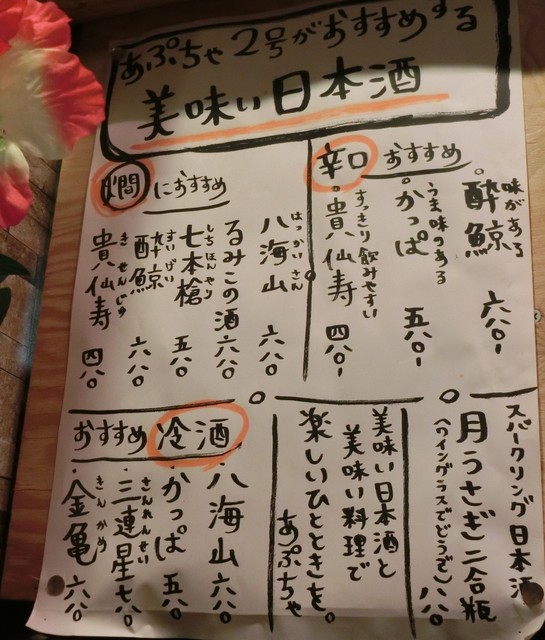 あぷちゃ2号がおすすめする
美味い日本酒
辛口 おすすめ
味がある
酔鯨 六八〇-
うま味のある
・かっぱ 五八〇-
すっきり飲みやすい
・貴仙寿 四八〇-
燗におすすめ
はっかいさん
八海山 六八〇
るみこの酒 六八〇
しちほんやり
七本槍 五八〇
すいげい
酔鯨 六八〇
きせんじゅ
貴仙寿 四八〇
スパークリング日本酒
月うさぎ二合瓶
(ワイングラスでどうぞ) 八八〇
美味い日本酒と
美味い料理で
楽しいひとときを。
あぷちゃ
おすすめ冷酒
・八海山 六八〇
・かっぱ 五八〇
さんれんせい
・三連星 七八〇
きんかめ
・金亀 六八〇